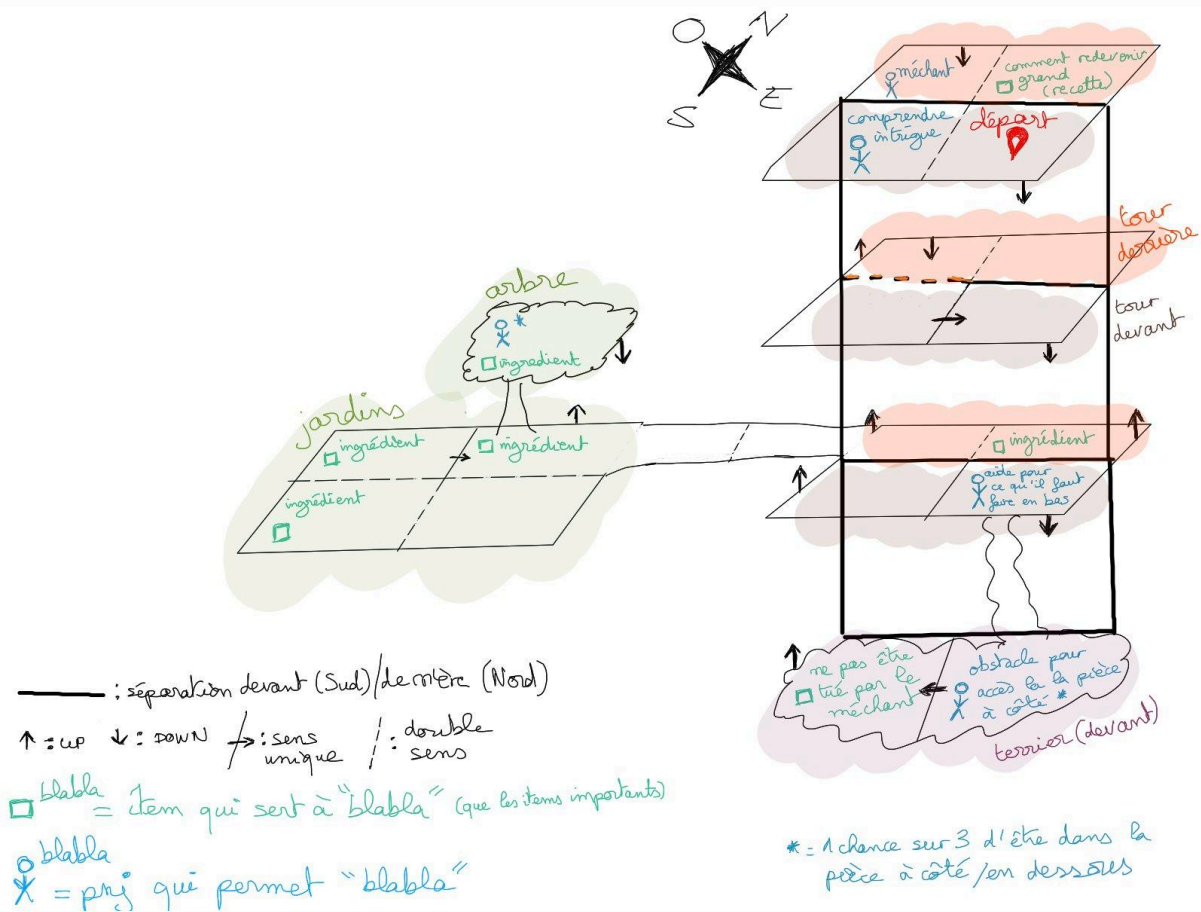 O N
S E
méchant
comment redevenir
grand
(recette)
comprendre
intrigue
départ
tour
derrière
tour
devant
arbre
ingrédient
jardins
ingrédient
ingrédient
ingrédient
ingrédient
aide pour
ce qu'il faut
faire en bas
ne pas être
tué par le
méchant
obstacle pour
accès la la pièce
à côté *
terrier (devant)
: séparation devant (Sud)/derrière (Nord)
: UP : DOWN : sens
unique : double
sens
blabla
= item qui sert à "blabla" (que les items importants)
blabla
= pnj qui permet "blabla"
* = 1 chance sur 3 d'être dans la
pièce à côté/en dessous